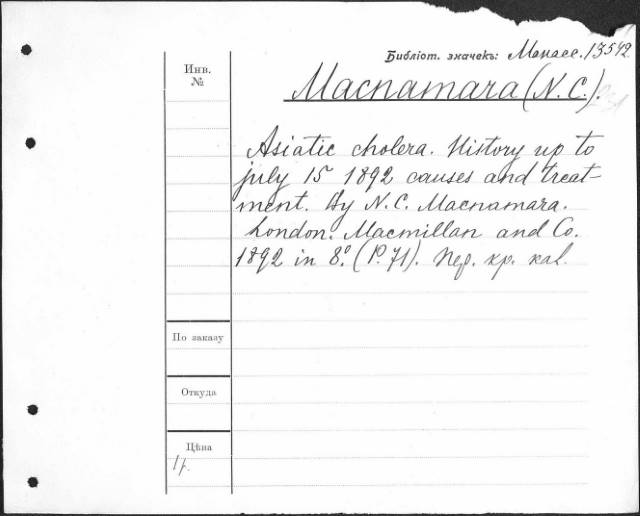 Библіот. значекъ: Манасс. 13542
Инв.
№
Macnamara (N. C.).
Asiatic cholera. History up to
july 15 1892 causes and treat-
ment. By N. C. Macnamara.
London. Macmillan and Co.
1892 in 8º. (P. 71). Пер. кр. кал.
По заказу
Откуда
Цѣна
1 р.